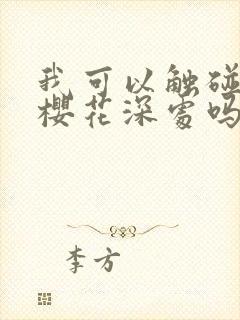 我可以触碰
樱花深处吗
李方